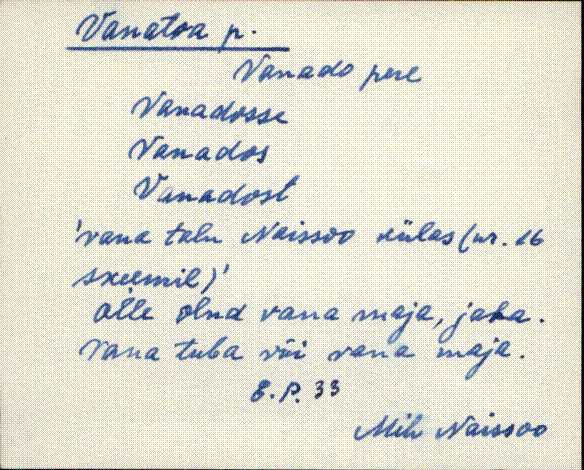 Vanatoa p.
Vanado pere
Vanadosse
Vanados
Vanadost
'vana talu Naissoo külas (nr. 16
skeemil)'
Olle olnd vana maja, jaha.
Vana tuba või vana maja.
E.P. 33
Mih Naissoo